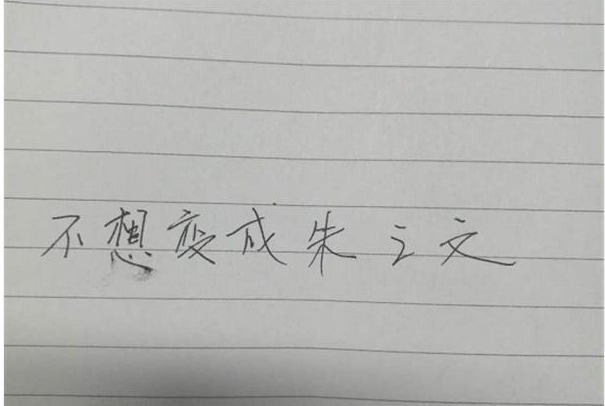 不想变成朱之文